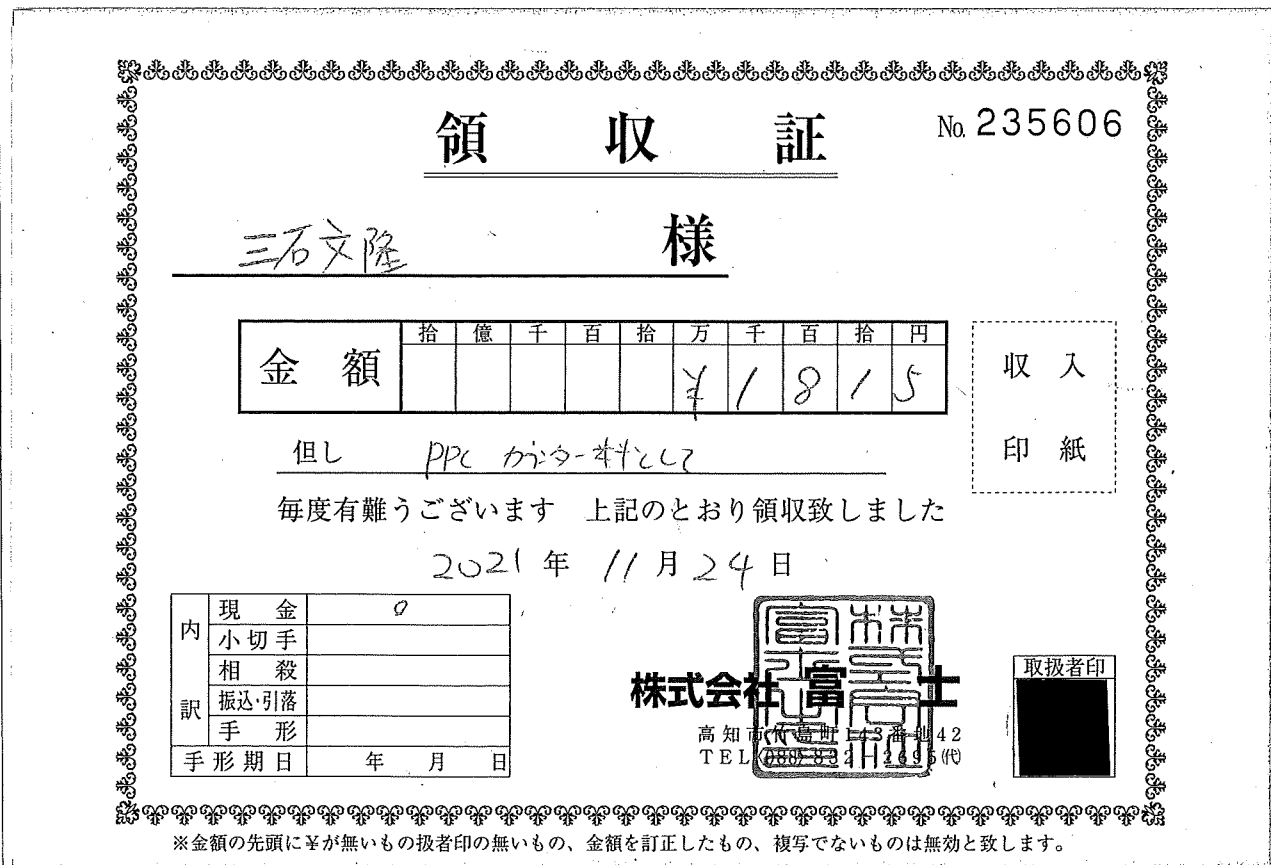 領収証
No. 235606
三石文隆 様
金額 拾 億 千 百 拾 万 千 百 拾 円
¥1815
但し PPC カウンター料として
収入
印紙
毎度有難うございます 上記のとおり領収致しました
2021年11月24日
内訳
現金 0
小切手
相殺
振込・引落
手形
手形期日 年 月 日
株式会社 富士
高知市竹島町143番地42
TEL(088)832-2695(代)
取扱者印
※金額の先頭に¥が無いもの扱者印の無いもの、金額を訂正したもの、複写でないものは無効と致します。